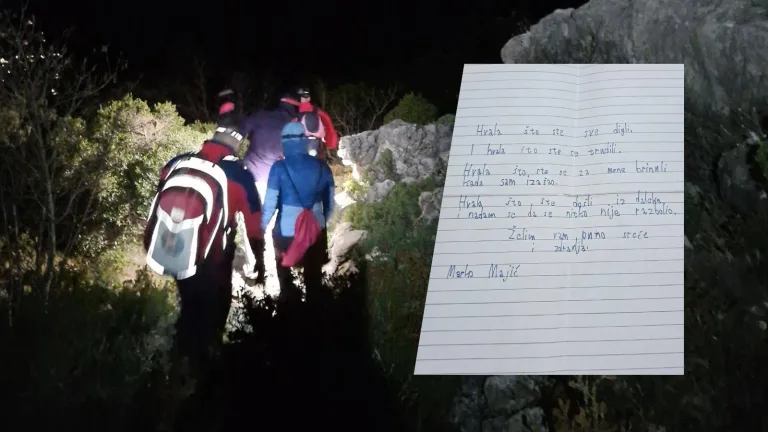 Hvala što ste sve digli.
I hvala što ste se trudili.
Hvala što ste se za mene brinuli
kada sam izašao.
Hvala što ste došli iz daleka
i nadam se da se nitko nije razbolio.
Želim vam puno sreće
i zdravlja.
Marko Majić